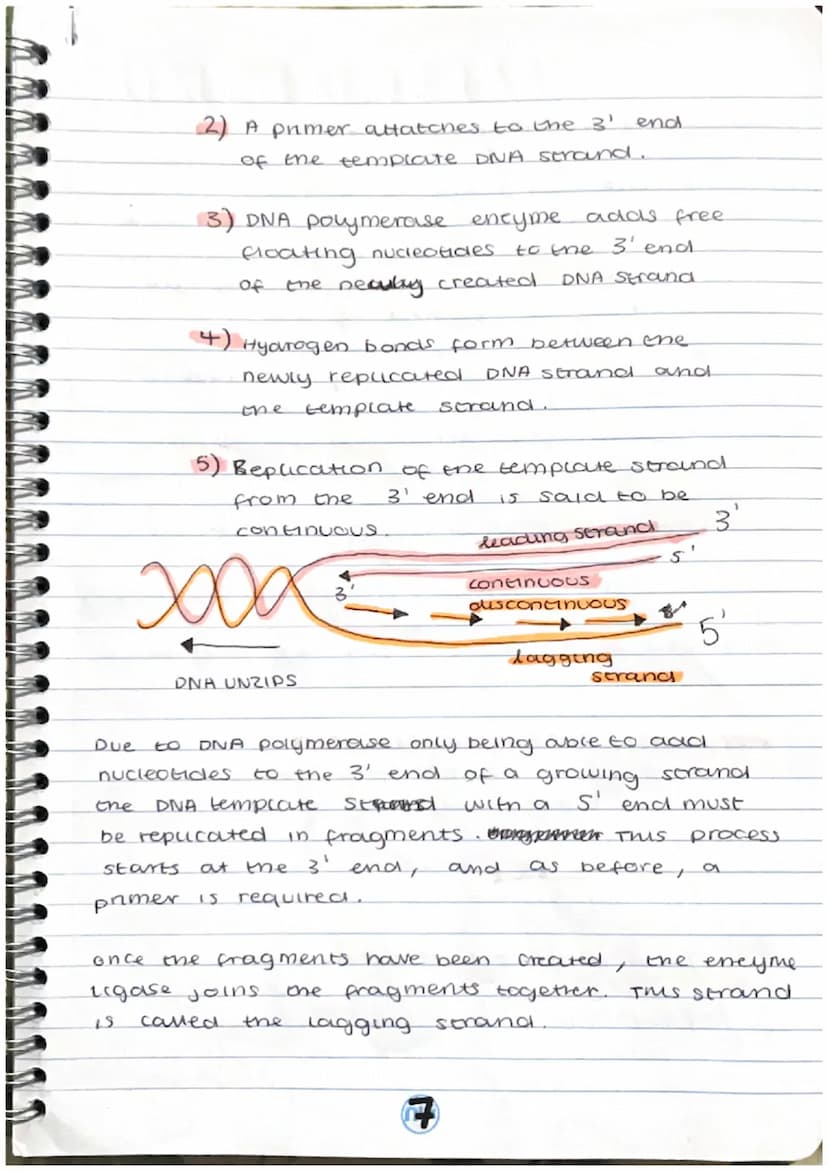 2) A primer attatches to the 3' end
of the template DNA strand.
3) DNA polymerase enzyme adds free
floating nucleotides to the 3' end
of the newly created DNA strand
4) Hydrogen bonds form between the
newly replicated DNA strand and
the template strand.
5) Replication of the template strand
from the 3' end is said to be
continuous.
leading strand 3'
5'
continuous
3'
discontinuous
5'
lagging
strand
DNA UNZIPS
Due to DNA polymerase only being able to add
nucleotides to the 3' end of a growing strand
the DNA template strand with a 5' end must
be replicated in fragments. This process
starts at the 3' end, and as before, a
primer is required.
once the fragments have been created, the enzyme
ligase joins the fragments together. This strand
is called the lagging strand.
7